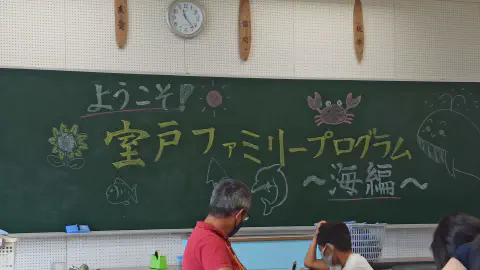 ようこそ!
室戸ファミリープログラム
~海編~